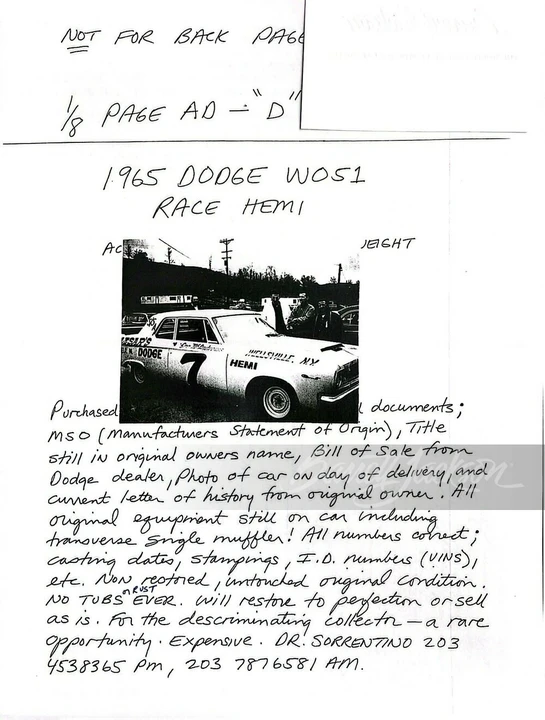 NOT FOR BACK PAGE
1/8 PAGE AD - "D"
1965 DODGE WO51
RACE HEMI
AC EIGHT
DODGE
7
HEMI
WELLSVILLE, NY
Purchased l documents;
MSO (Manufacturers Statement of Origin), Title
still in original owners name, Bill of Sale from
Dodge dealer, Photo of car on day of delivery, and
current letter of history from original owner. All
original equipment still on car including
transverse single muffler! All numbers correct;
casting dates, stampings, I.D. numbers (VINS),
etc. Non restored, untouched original condition.
NO TUBS or RUST EVER. Will restore to perfection or sell
as is. For the descriminating collector - a rare
opportunity. Expensive. DR. SORRENTINO 203
4538365 Pm, 203 7876581 AM.